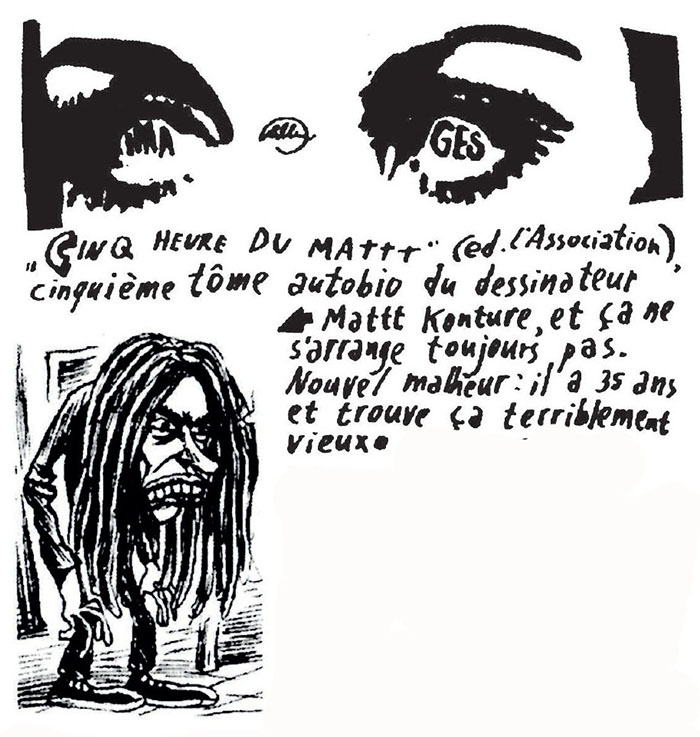 IMA GES
"CINQ HEURE DU MATTT" (ed. l'Association),
cinquième tôme autobio du dessinateur
Mattt Konture, et ça ne
s'arrange toujours pas.
Nouvel malheur: il a 35 ans
et trouve ça terriblement
vieux.